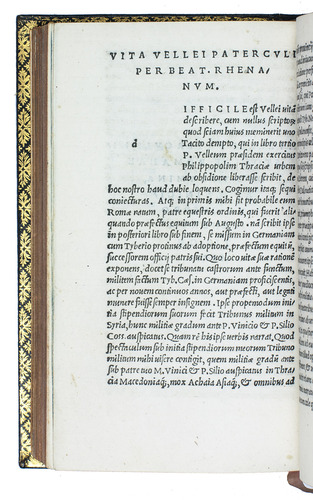 VITA VELLEI PATERCVLI
PER BEAT. RHENA/
NVM.
d IFFICILE est Vellei vitã
describere, cum nullus scriptoꝝ
quod sciam huius meminerit uno
Tacito dempto, qui in libro tertio
P. Velleum præsidem exercitus
Philippopolim Thraciæ urbem
ab obsidione liberasse scribit, de
hoc nostro haud dubie loquens. Cogimur itaq; sequi
coniecturas. Atq; in primis mihi fit probabile eum
Romæ natum, patre equestris ordinis, qui fuerit aliquando
præfectus equitum sub Augusto. nã scribit ipse
in posteriori libro sub finem, se missum in Germaniam
cum Tyberio protinus ab adoptione, præfectum equitũ,
successorem officij patris sui. Quo loco vitæ suæ rationẽ
exponens, docet se tribunatu castrorum ante functum,
militem factum Tyb. Cæs. in Germaniam proficiscentis,
ac per nouem continuos annos, aut præfecti, aut legati
munere fuisse semper insignem. Ipse præterea
initia stipendiorum suorum fecit Tribunus militum in
Syria, hunc militiæ gradum ante P. Vinicio & P. Silio
Coss. auspicatus. Quanꝗ̃ hæc his ipse verbis narrat, Quod
spectaculum sub initia stipendiorum meorum Tribuno
militum mihi uisere contigit, quem militiæ gradũ ante
sub patre tuo M. Vinici & P. Silio auspicatus in Thracia
Macedoniaq;, mox Achaia Asiaq;, & omnibus ad